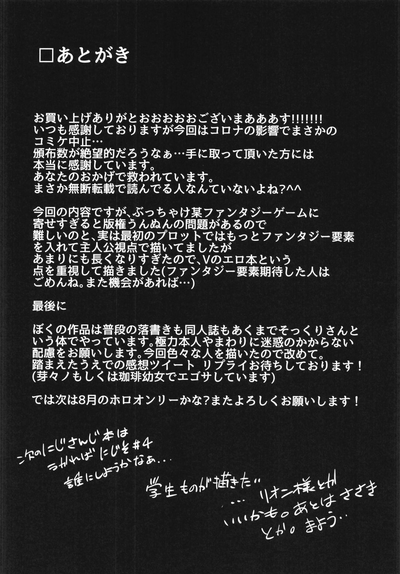 □あとがき
お買い上げありがとおおおおおございまあああす!!!!!!!
いつも感謝しておりますが今回はコロナの影響でまさかの
コミケ中止…
頒布数が絶望的だろうなぁ…手に取って頂いた方には
本当に感謝しています。
あなたのおかげで救われています。
まさか無断転載で読んでる人なんていないよね?^^
今回の内容ですが、ぶっちゃけ某ファンタジーゲームに
寄せすぎると版権うんぬんの問題があるので
難しいのと、実は最初のプロットではもっとファンタジー要素
を入れて主人公視点で描いてましたが
あまりにも長くなりすぎたので、Vのエロ本という
点を重視して描きました(ファンタジー要素期待した人は
ごめんね。また機会があれば…)
最後に
ぼくの作品は普段の落書きも同人誌もあくまでそっくりさんと
いう体でやっています。極力本人やまわりに迷惑のかからない
配慮をお願いします。今回色々な人を描いたので改めて。
踏まえたうえでの感想ツイート リプライお待ちしております!
(芽々ノもしくは珈琲幼女でエゴサしています)
では次は8月のホロオンリーかな?またよろしくお願いします!
次のにじさんじ本は
うかればにじそ#4
誰にしようかなぁ…
学生ものが描きたい
… リオン様とか
いいかも。あとはささき
とか。まよう…